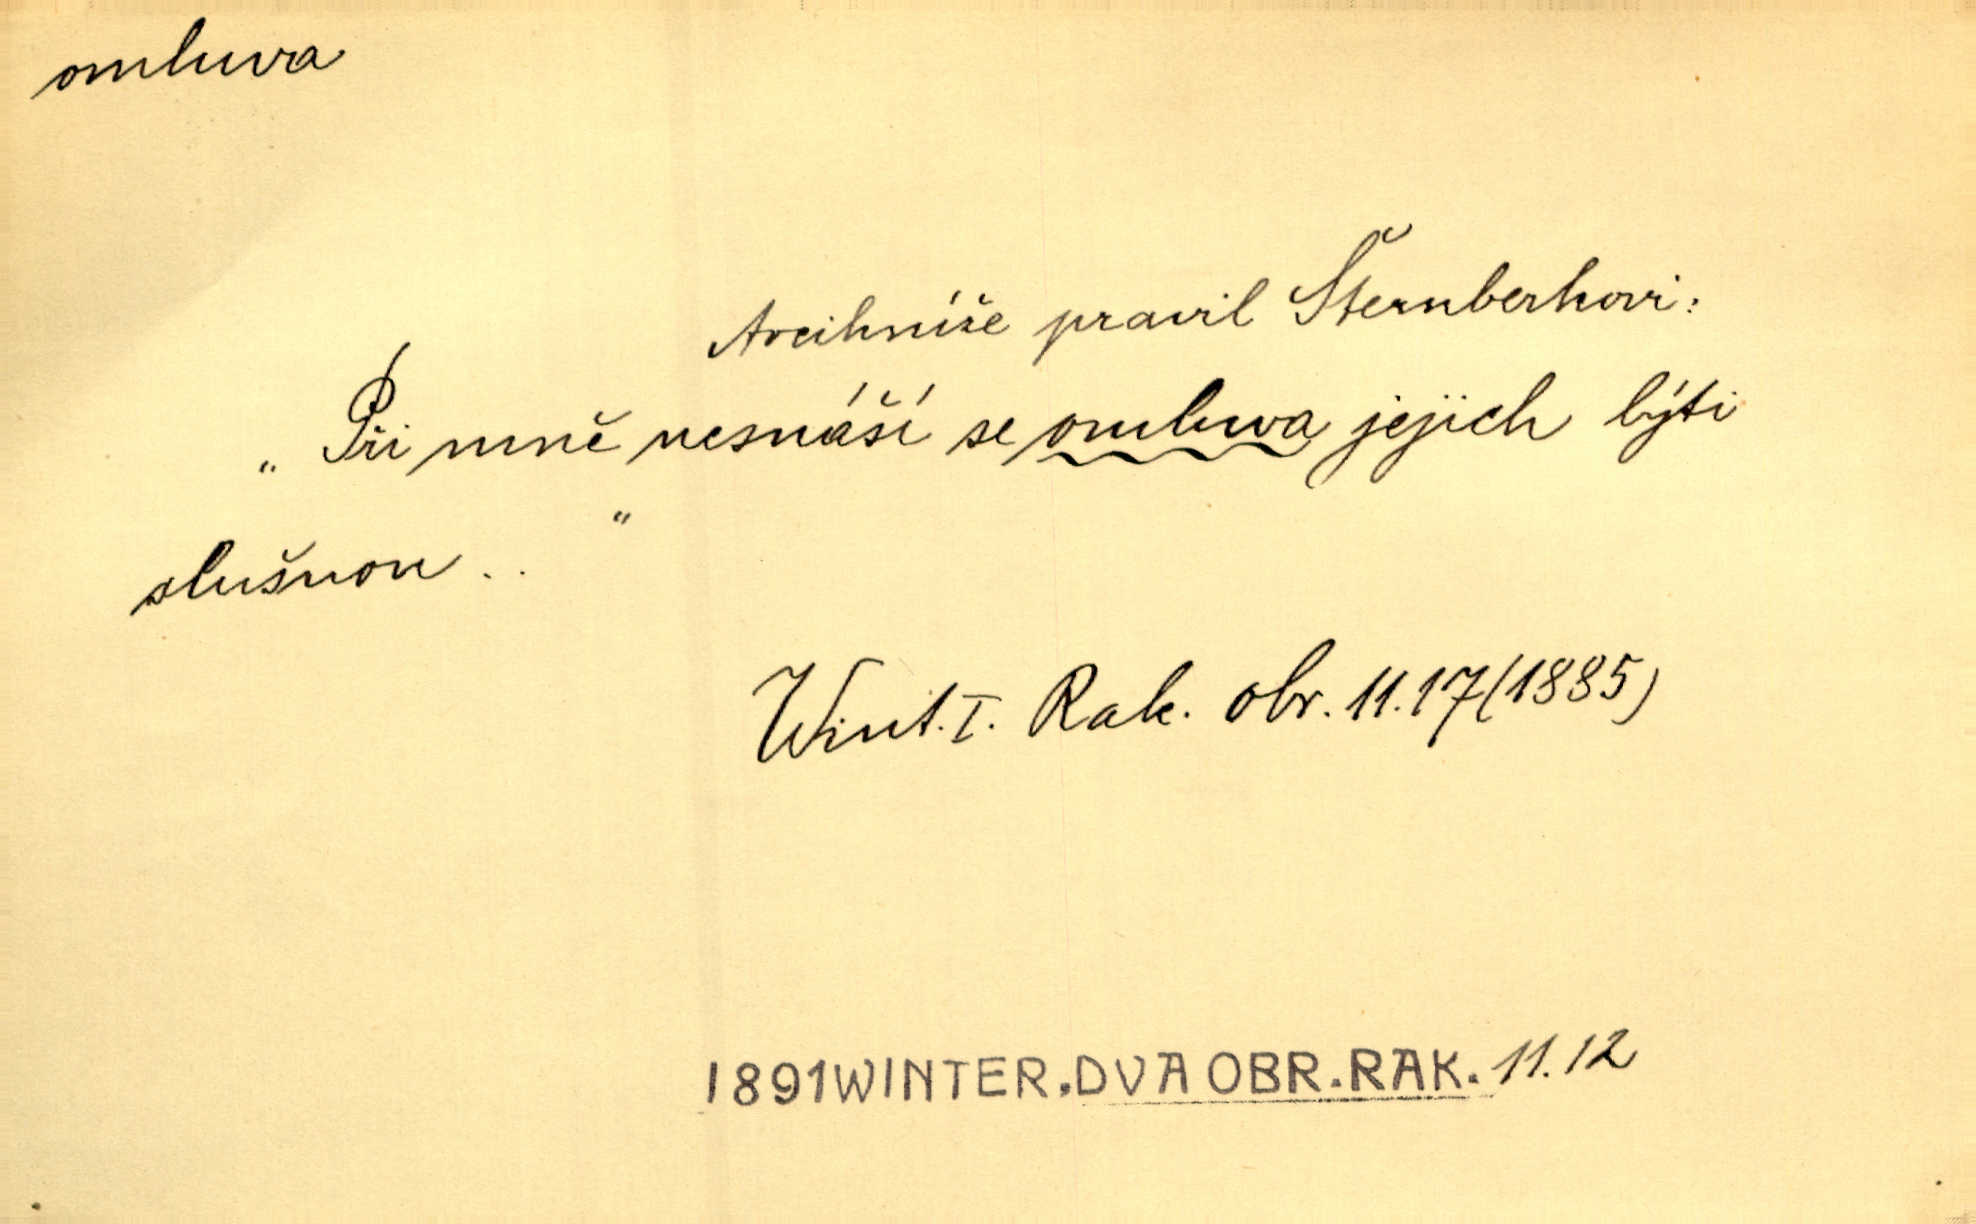 omluva
Arcikníže pravil Šternberkovi:
„Při mně nesnáší se omluva jejich býti
slušnou .. “
Wint. I. Rak. obr. 11.17 (1885)
1891 WINTER. DVA OBR. RAK. 11.12